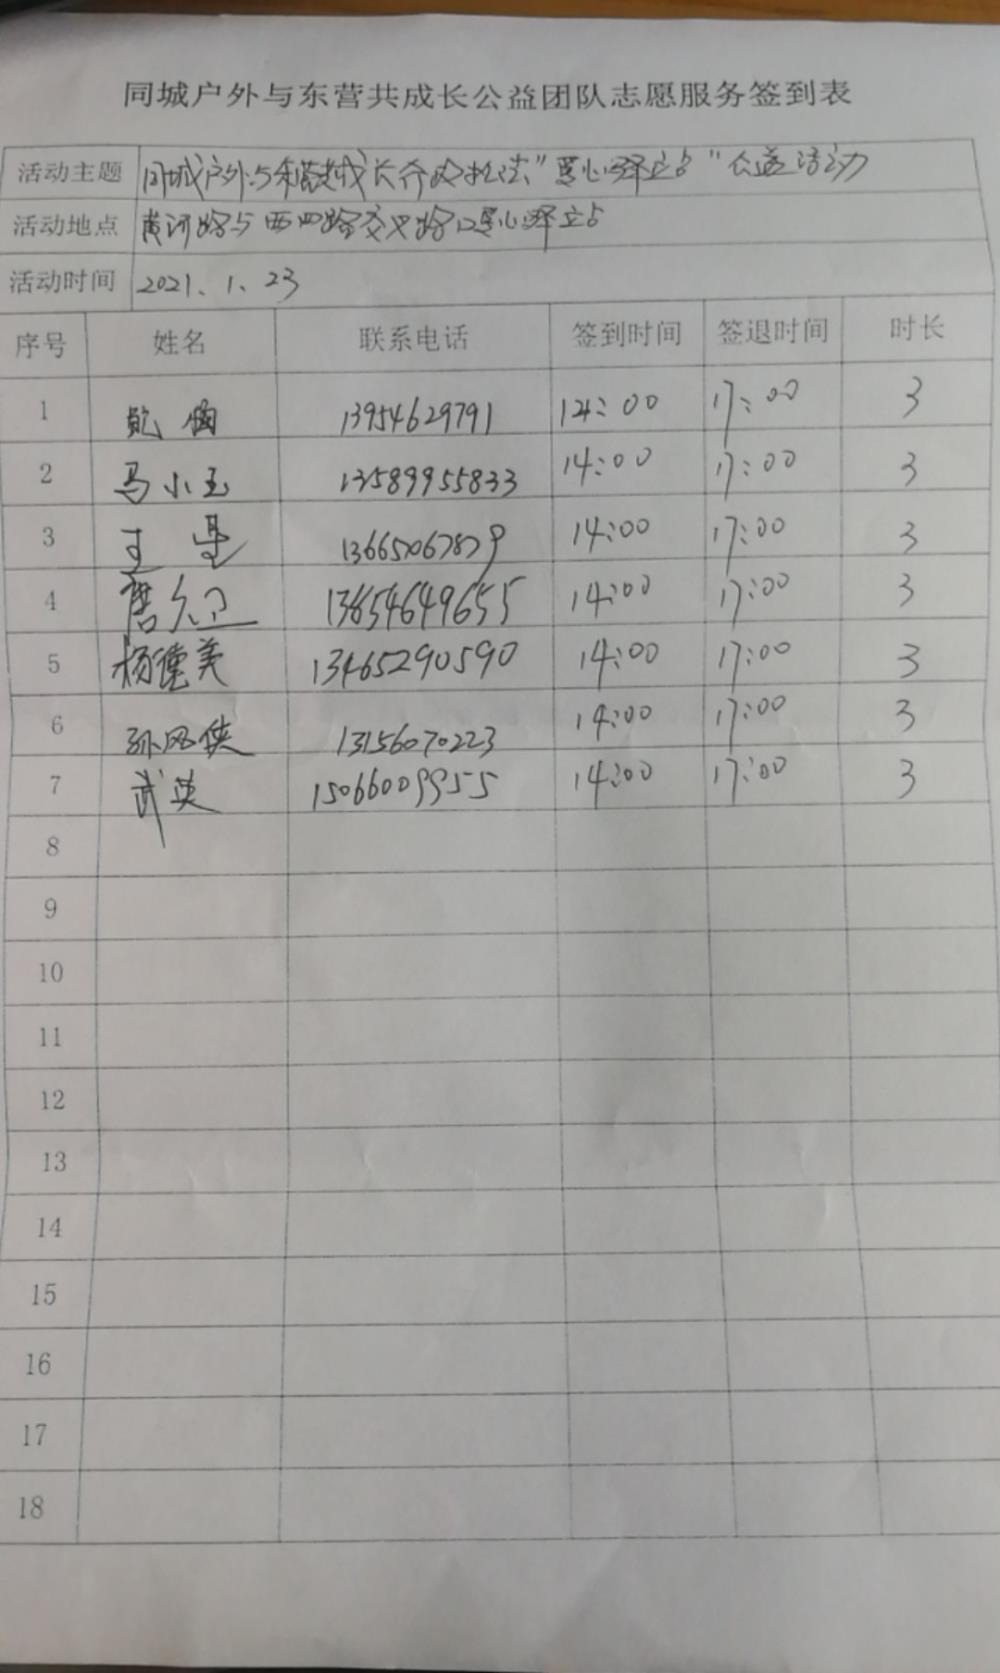 同城户外与东营共成长公益团队志愿服务签到表
活动主题 同城户外与东营共成长 "爱心驿站" 公益活动
活动地点 黄河路与西四路交叉路口爱心驿站
活动时间 2021.1.23
序号 姓名 联系电话 签到时间 签退时间 时长
1 13954629791 14:00 17:00 3
2 马小玉 13589955833 14:00 17:00 3
3 王 13665067879 14:00 17:00 3
4 唐 13654649655 14:00 17:00 3
5 杨 美 13465290590 14:00 17:00 3
6 孙风侠 13156070223 14:00 17:00 3
7 武英 15066009955 14:00 17:00 3
8
9
10
11
12
13
14
15
16
17
18